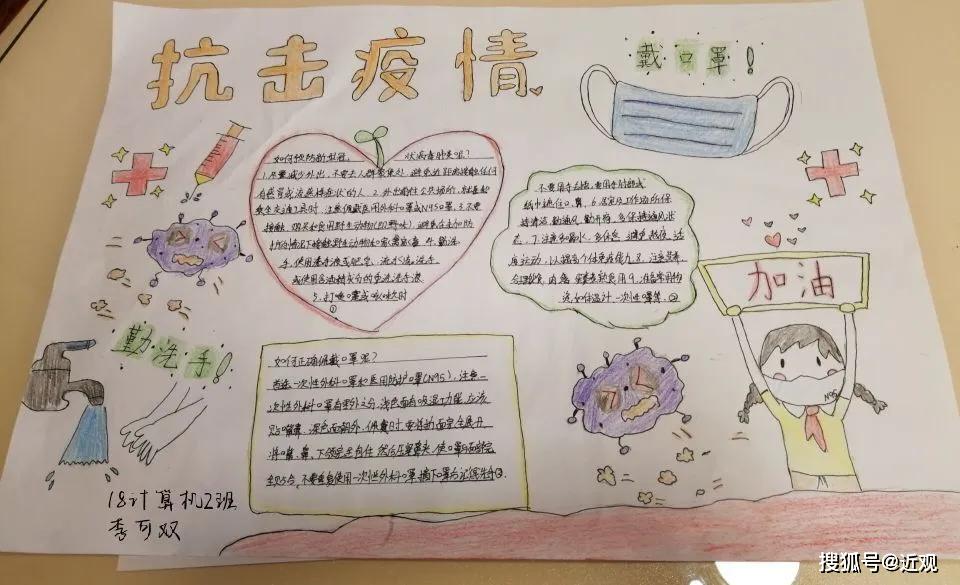 抗击疫情
戴口罩!
如何预防新型冠状病毒肺炎呢?
1.尽量减少外出,不要去人群聚集处,避免近距离接触任何
有感冒或流感样症状的人 2.外出前往公共场所,就医和
乘坐交通工具时,注意佩戴医用外科口罩或N95口罩,3.不要
接触,购买和食用野生动物(即野味),避免在未加防
护的情况下接触野生动物和家禽家畜 4.勤洗
手,使用
或使用含酒精成分的免洗洗手液
5.打喷嚏或咳嗽时
①
纸巾遮住口、鼻、6.
持清洁,勤通风
态,7.注意多喝水,多休息,避免熬夜,适
度运动,以提高个体免疫能力 8.注意营养,
合理饮食,肉
②
加油
N95
勤洗手!
如何正确佩戴口罩呢?
首选一次性外科口罩和医用防护口罩(N95),注意一
次性外科口罩有里外之分,浅色面有吸湿功能,应该
贴口鼻,深色面朝外,佩戴时
将嘴、鼻、下颌完全包住,然后压紧鼻夹,使口罩与面部完
全贴合,不要重复使用一次性外科口罩,摘下口罩后记得洗手③
18计算机2班
李可双
搜狐号@近观